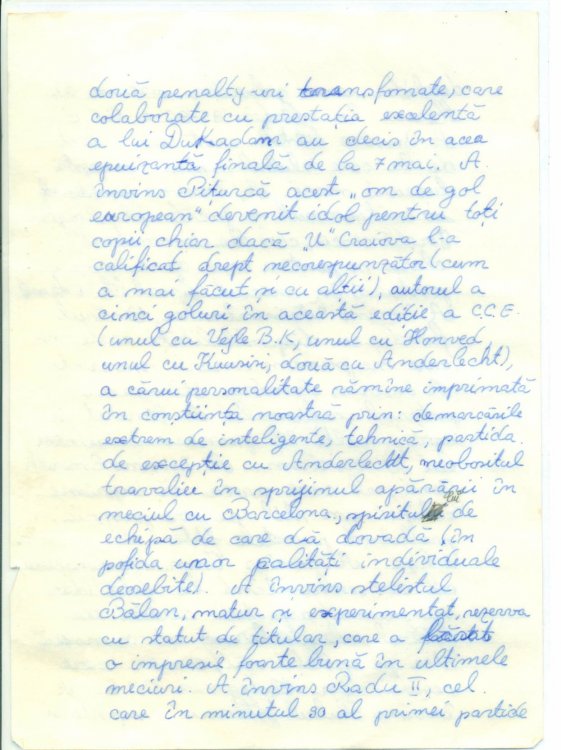 două penalty-uri transfomate, care
colaborate cu prestația excelentă
a lui Dukadam au decis în acea
epuizantă finală de la 7 mai. A
învins Pițurcă acest „om de gol
european" devenit idol pentru toți
copii chiar dacă „U" Craiova l-a
calificat drept necorespunzător (cum
a mai făcut și cu alții), autorul a
cinci goluri în această ediție a C.C.E.
(unul cu Vejle B.K, unul cu Honved,
unul cu Kuusisi, două cu Anderlecht),
a cărui personalitate rămîne imprimată
în conștiința noastră prin: demarcările
extrem de inteligente, tehnică, partida
de excepție cu Anderlecht, neobositul
travaliu în sprijinul apărării în
meciul cu Barcelona, spiritului de
echipă de care dă dovadă (în
pofida unor calități individuale
deosebite). A învins stelistul
Bălan, matur și experimentat, rezerva
cu statut de titular, care a
o impresie foarte bună în ultimele
meciuri. A învins Radu II, cel
care în minutul 90 al primei partide